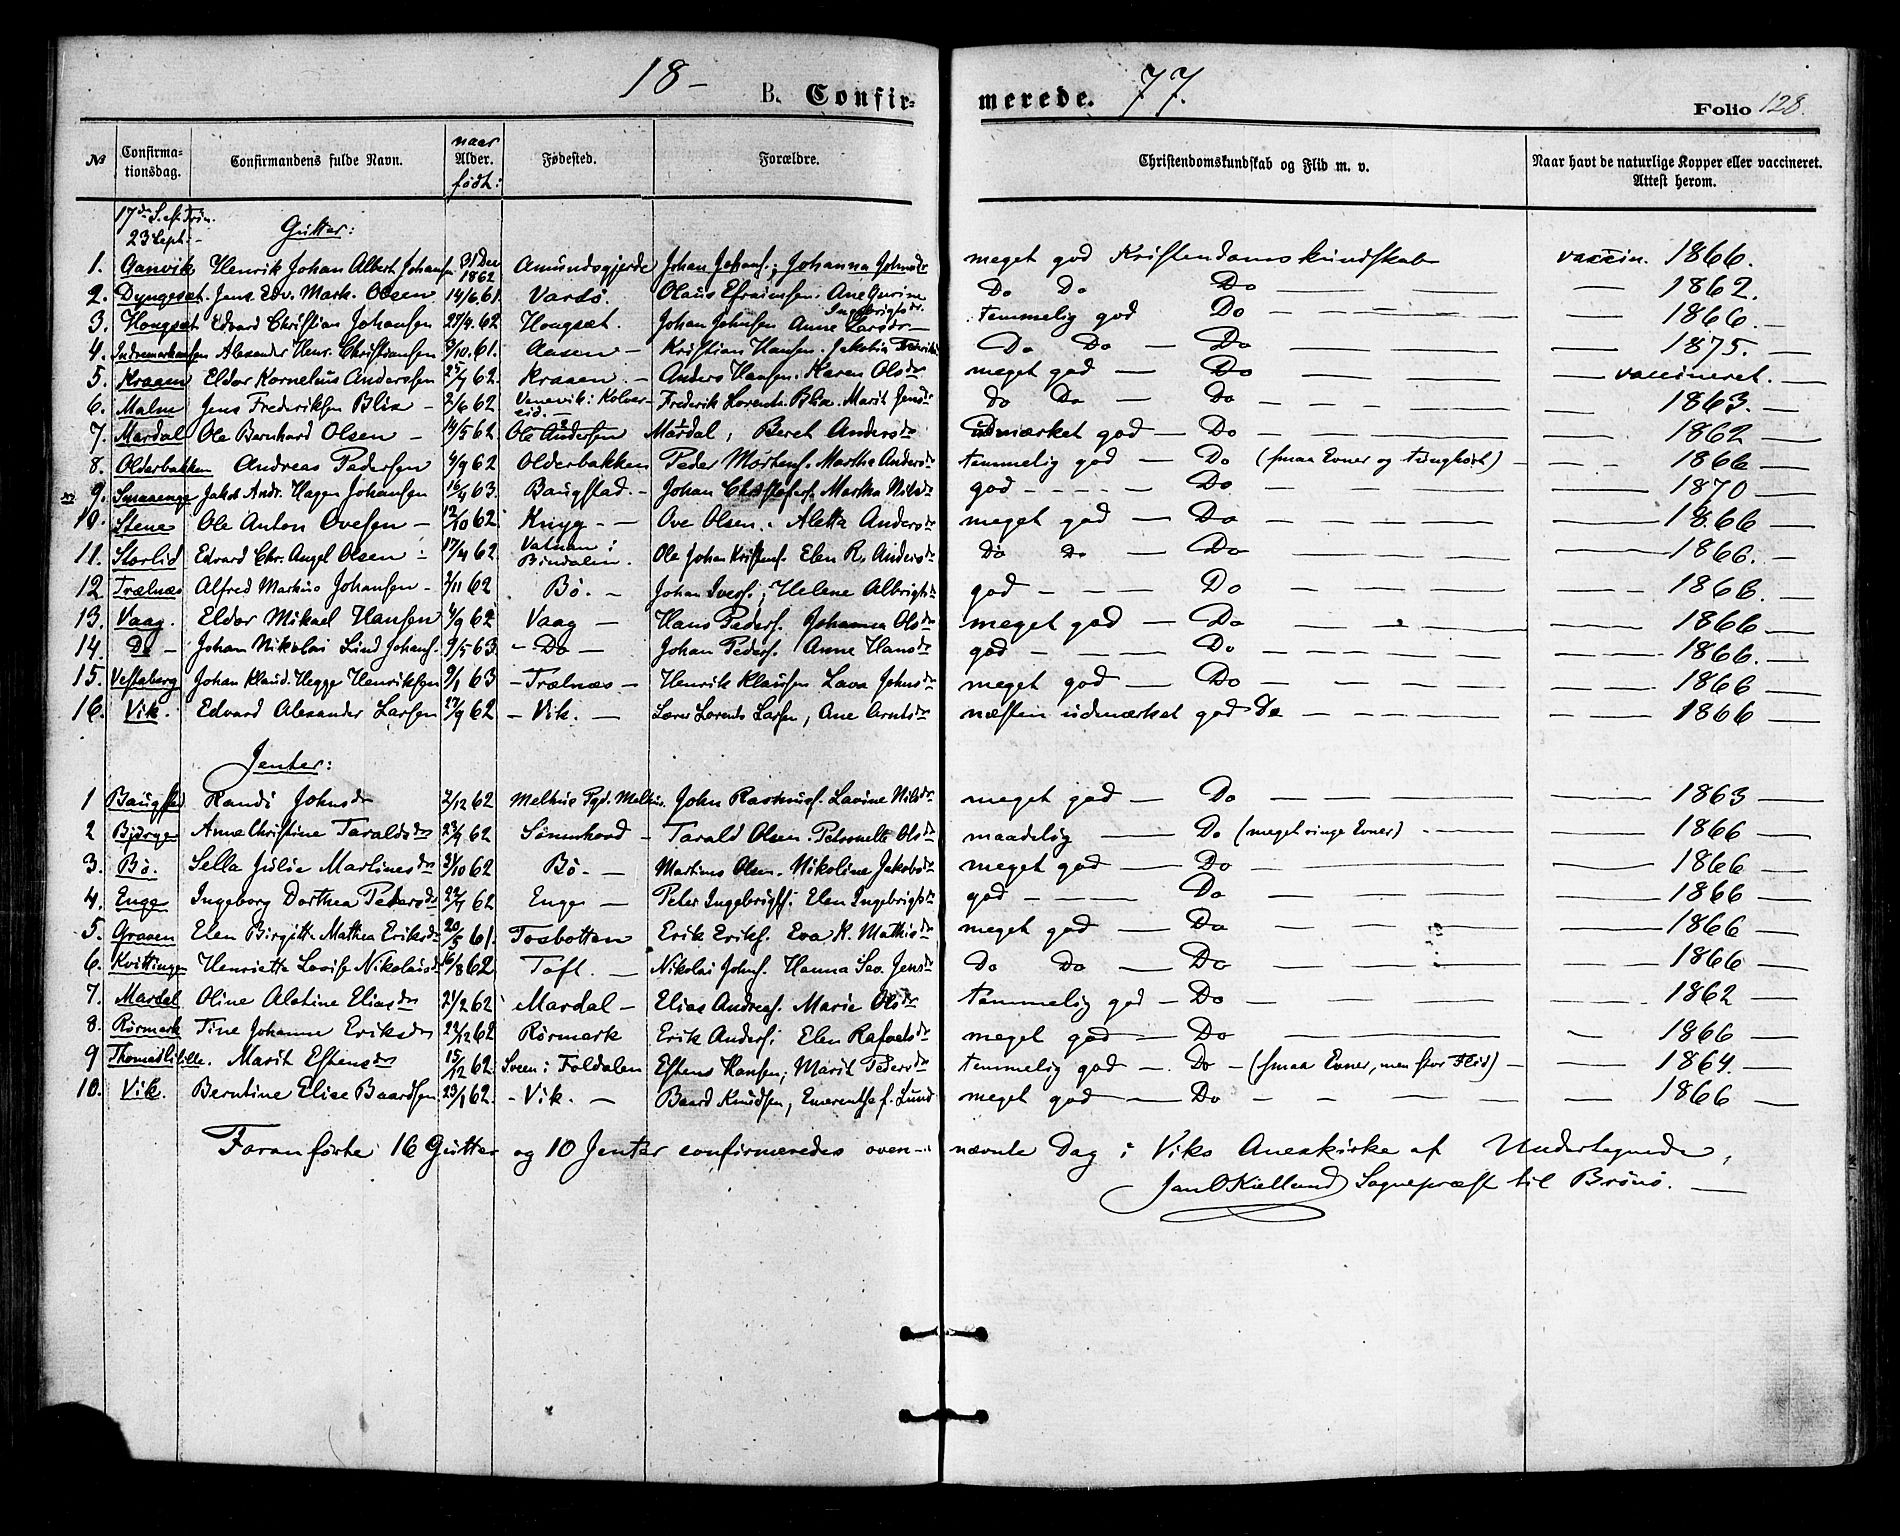 18- B. Confirmerede. 77. Folio 128.
№ Confirmationsdag. Confirmandens fulde Navn. naar Alder. født: Fødested. Forældre. Christendomskundskab og Flid m. v. Naar havt de naturlige Kopper eller vaccineret. Attest herom.
17de S. ef. Trin. 23 Sept:- Gutter:
1. Ganvik Henrik Johan Albert Johansen 31 Dec 1862 Amundsgjerde Johan Johans.; Johanna Johnsdr meget god Kristendomskundskab vaccin. 1866.
2. Dyngeset. Jens Edv. Mark. Olsen 14/6.61. Vardø. Olaus Efraimsen. Ane Gurine Ingebrigtsdr. Do Do Do 1862.
3. Hongset Edvard Christian Johansen 27/9.62 Hongsæt. Johan Johnsen Anne Larsdr temmelig god Do 1866.
4. Alexander Henr. Christiansen 3/10.61. Aasen Kristian Hansen. Jakobia Do Do Do 1875.
5. Kraaen Eldor Kornelius Andersen 25/7 62. Kraaen. Anders Hansen. Karen Olsdr meget god Do vaccineret.
6. Malm Jens Frederiksen Blix 2/6 62 Venevik i Kolvereid. Frederik Lorents. Blix. Marit Jensdr do Do Do 1863.
7. Mardal Ole Bernhard Olsen 14/5 62 Ole Andersen Mardal, Beret Andersdr udmærket god Do 1862
8. Olderbakken Andreas Pedersen 4/9 62 Olderbakken Peder Mortens. Martha Andersdr temmelig god Do (smaa Evner og tunghørt) 1866
9. Smaaenge Jakob Andr. Hagen Johansen 16/4 63. Baugstad. Johan Christofers. Martha Nilsdr god Do 1870
10. Stene Ole Anton Ovesen 12/10 62 Knyg Ove Olsen. Aletta Andersdr meget god Do 1866
11. Storlid Edvard Chr. Angel Olsen 17/4 62 Vatnan i Bindalen. Ole Johan Kristens. Elen R. Andersdr Do Do Do 1866.
12 Trælnæs Alfred Markus Johansen 2/11 62 Bø. Johan Ivers.; Helene Albrigtsdr god Do 1866.
13. Vaag. Eldor Mikael Hansen 4/9 62 Vaag Hans Peders. Johanna Olsdr meget god Do 1866
14. Do Johan Nikolai Lund Johans. 9/5 63. Do Johan Peders. Anne Hansdr god Do 1866.
15. Vestaberg Johan Klaud. Hegge Henriksen 9/1 63 Trælnæs Henrik Klausen Lava Johnsdr meget god Do 1866
16. Vik. Edvard Alexander Larsen 27/9 62 Vik. Lærer Lorents Larsen, Ane Arntsdr næsten udmærket god Do 1866
Jenter:
1 Baugstad Randi Johnsdr 2/12 62 Melhus Pgd. Melhus. John Rasmuss. Lavine Nilsdr meget god Do 1863
2 Bjørge Anne Christine Taraldsdr 23/9 62 Sømnhovd Tarald Olsen. Petronelle Olsdr maadelig Do (meget ringe Evner) 1866
3. Bø. Sella Julie Martinesdr 31/10 62 Bø. Martinus Olsen. Nikoline Jakobsdr meget god Do 1866
4. Enge Ingeborg Dorthea Petersdr 22/7 62 Enge Peter Ingebrigts. Elen Ingebrigtsdr god Do 1866
5. Graaen Elen Birgitte Mathea Eriksdr 20/5 61. Tosbotten Erik Eriks. Eva K. Mathisdr meget god Do 1866
6. Kvittingen Henriette Lovise Nikolaisdr 16/8 62 Toft. Nikolai Johns. Hanna Sev. Jensdr Do Do Do 1866
7. Mardal Oline Aletine Eliasdr 21/2 62 Mardal Elias Andreas. Marie Olsdr temmelig god Do 1862
8. Rørmark Tine Johanne Eriksdr 22/12 62 Rørmark Erik Anders. Elen Rafaelsdr meget god Do 1866
9 Thomaslille. Marit Estensdr 15/12 62. Sveen i Foldalen Estens Hansen, Marit Pedersdr temmelig god Do (smaa Evner, men stor Flid) 1864.
10. Vik. Berntine Elise Baardsen 23/1 62. Vik. Baard Knudsen, Emerentse f. Lund meget god Do 1866
Foranførte 16 Gutter og 10 Jenter confirmeredes ovennævnte Dag i Viks Anexkirke af Undertegnede,
Jan O Kielland Sognepræst til Brønø.